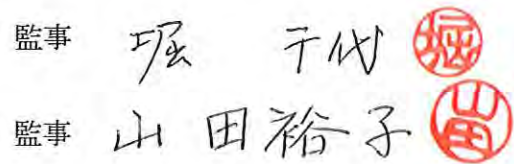 監事 堀 千代 堀
監事 山田裕子 山田